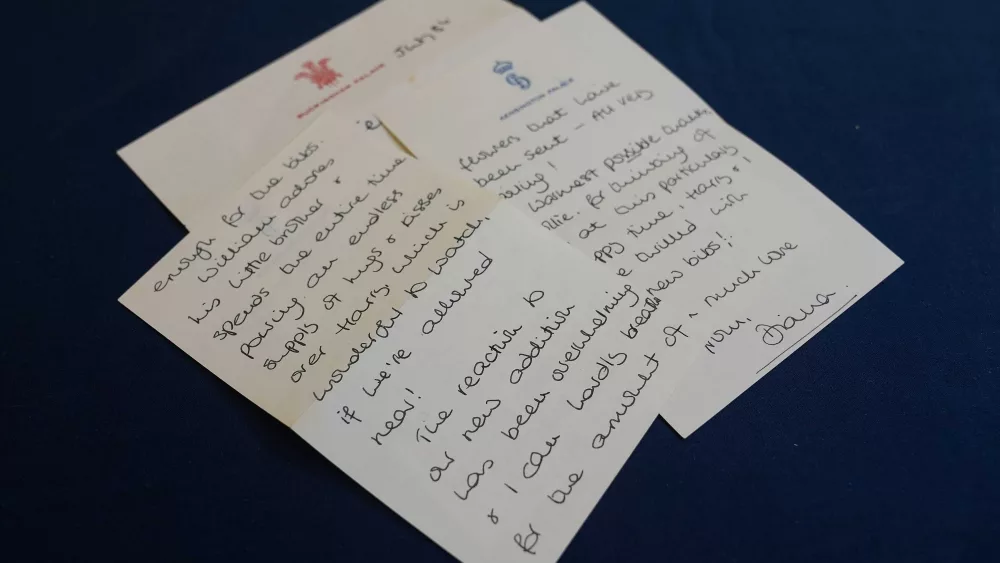 BUCKINGHAM PALACE
July 84
enough for the bibs.
William adores
his little brother &
spends the entire time
pouring an endless
supply of hugs & kisses
over Harry, which is
wonderful to watch,
if we're allowed
near!
The reaction to
our new addition
has been overwhelming
& I can hardly breath
for the amount of
KENSINGTON PALACE
flowers that have
been sent - All very
oving!
Warmest possible thanks,
llie, for thinking of
at this particularly
ppy time, Harry & I
e thrilled with
new bibs!
much love
from,
Diana.